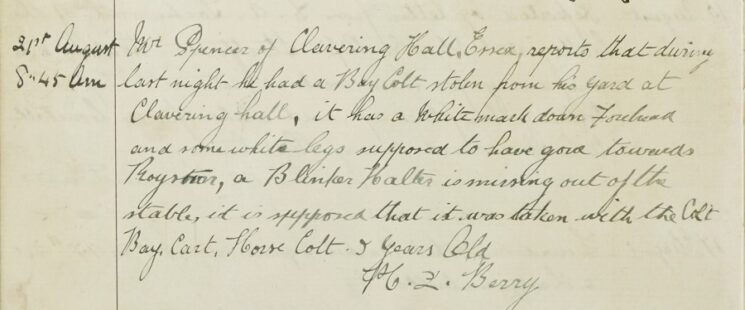 21st August
8-45 Am
Mr Spencer of Clavering Hall, Essex, reports that during
last night he had a Bay Colt stolen from his yard at
Clavering hall, it has a White mark down Forehead
and some white legs supposed to have gone towards
Royston, a Blinker Halter is missing out of the
stable, it is supposed that it was taken with the Colt
Bay, Cart, Horse Colt. Years Old
H. Berry